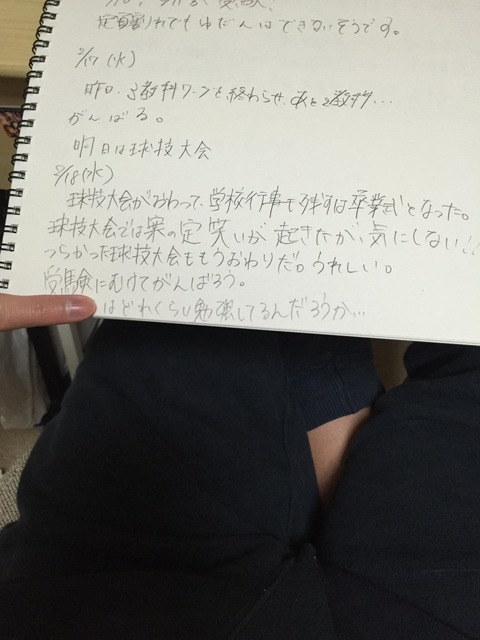 定員割れでもゆだんはできないそうです。
2/17 (火)
昨日、3教科ワークを終わらせ、あと2教科…
がんばる。
明日は球技大会
2/18(水)
球技大会がおわって、学校行事も残すは卒業式となった。
球技大会では案の定笑いが起きたが、気にしない!!
つらかった球技大会ももうおわりだ。うれしい。
受験にむけてがんばろう。
はどれくらい勉強してるんだろうか…